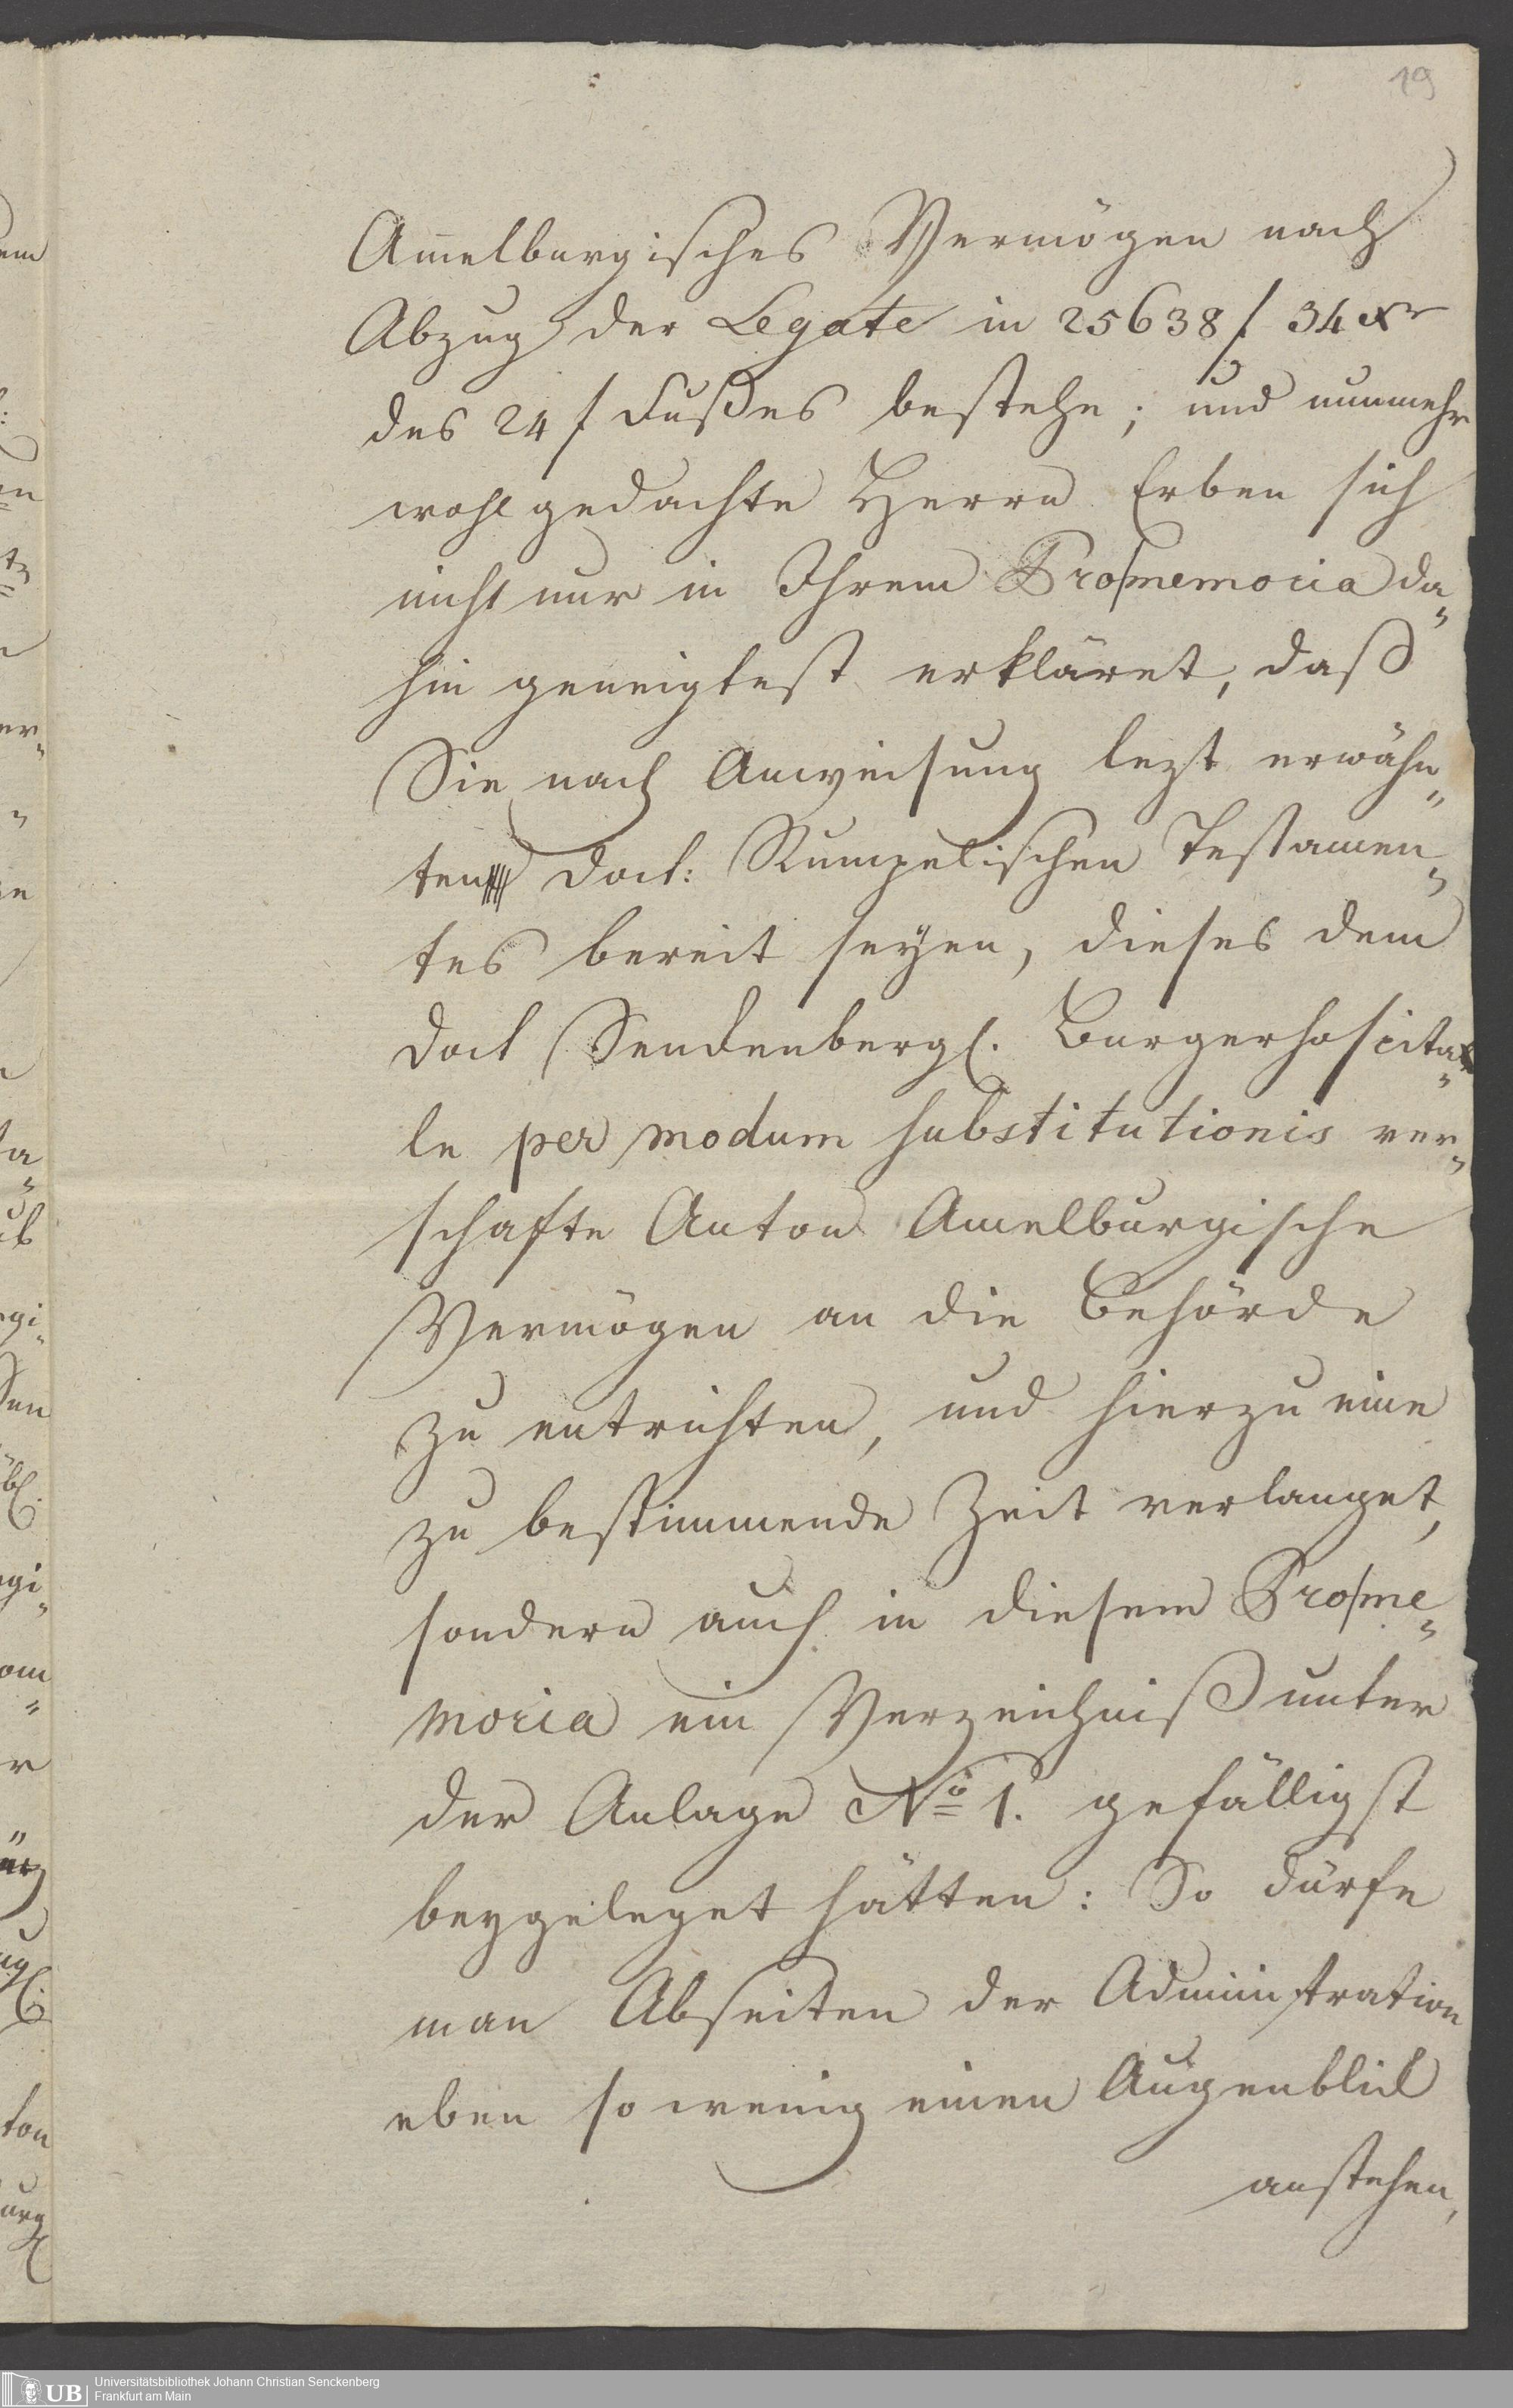 19
Am̄elburgisches Vermögen nach
Abzug der Legate in 25638 f 34 Xr
des 24 f Fußes bestehe; und nunmehr
wohlgedachte Herrn Erben sich
nicht nur in Ihrem Pro/memoria da„
hin geneigtest erkläret, daß
Sie nach Anweisung lezt erwähn„
ten Doct: Rumpelischen Testamen„
tes bereit seyen, dieses dem
Doct Senckenbergl. Burgerhospita„
le per modum substitutionis ver„
schafte Anton Amelburgische
Vermögen an die Behörde
zu entrichten, und hierzu eine
zu bestimmende Zeit verlanget,
sondern auch in diesem Pro/me„
moria ein Verzeichniß unter
der Anlage No 1. gefälligst
beygeleget hätten: So dürfe
man Abseiten der Administration
eben so wenig einen Augenblick
anstehen,
UB
Universitätsbibliothek Johann Christian Senckenberg
Frankfurt am Main